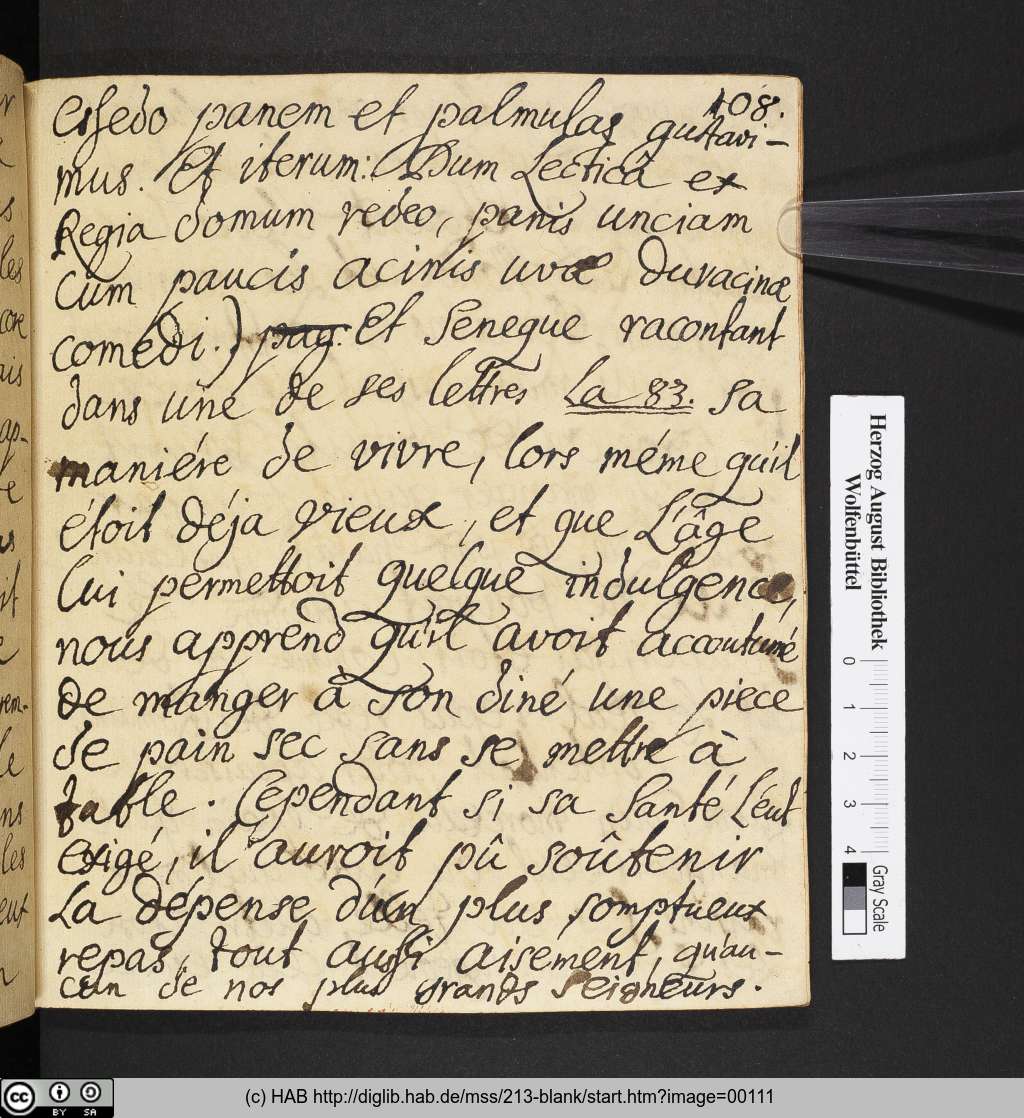 108.
Essedo panem et palmulas gustavi-
mus. Et iterum: Dum Lecticâ ex
Regia domum redeo, panis unciam
cum paucis acinis uvæ duracinæ
comedi.) pag. Et Seneque racontant
dans une de ses lettres La 83. sa
maniére de vivre, lors méme qu'il
étoit déja vieux, et que L'âge
Lui permettoit quelque indulgence,
nous apprend qu'il avoit accoutumé
de manger à son diné une piece
de pain sec sans se mettre à
table. Cependant si sa Santé L'eut
exigé, il auroit pû soûtenir
La dépense d'un plus somptueux
repas, tout aussi aisement, qu'au-
cun de nos plus grands Seigneurs.
Herzog August Bibliothek
Wolfenbüttel
0 1 2 3 4
Gray Scale
cc BY SA
(c) HAB http://diglib.hab.de/mss/213-blank/start.htm?image=00111